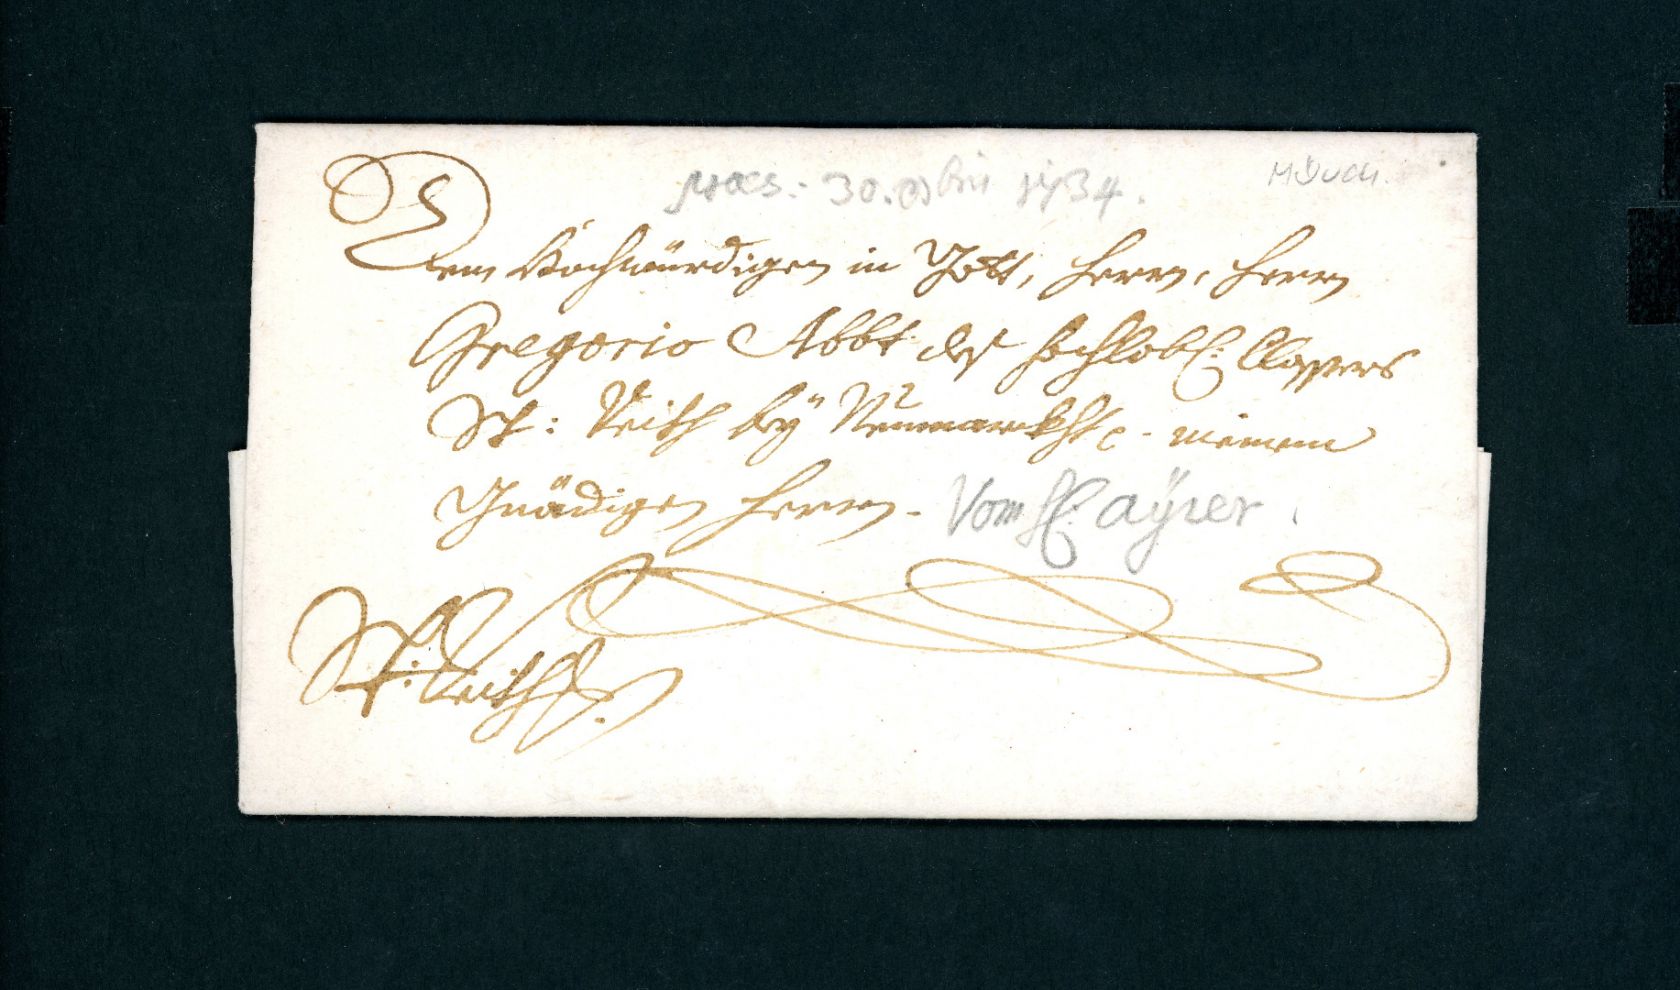 praes: 30. 9bris 1734.
Münch.
Dem Hochwürdigen in Gott, Herrn, Herrn
Gregorio Abbt des hochlobl: Closters
St: Veith bey Neumarckht p. meinem
Gnädigen Herrn.
Vom H: Mayrer.
St: Veith p.